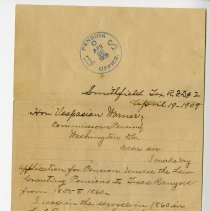 PENSION
OFFICE
Smithfield Tex R.F.D. # 2
April 19 - 1909
Hon Vespasian Warner
Commissioner Pensions
Washington DC
Dear sir
I make my
application for Pension under the Law
Granting Pensions to Texas Rangers
from 1855 to 1860
I was in the service in 1860 in